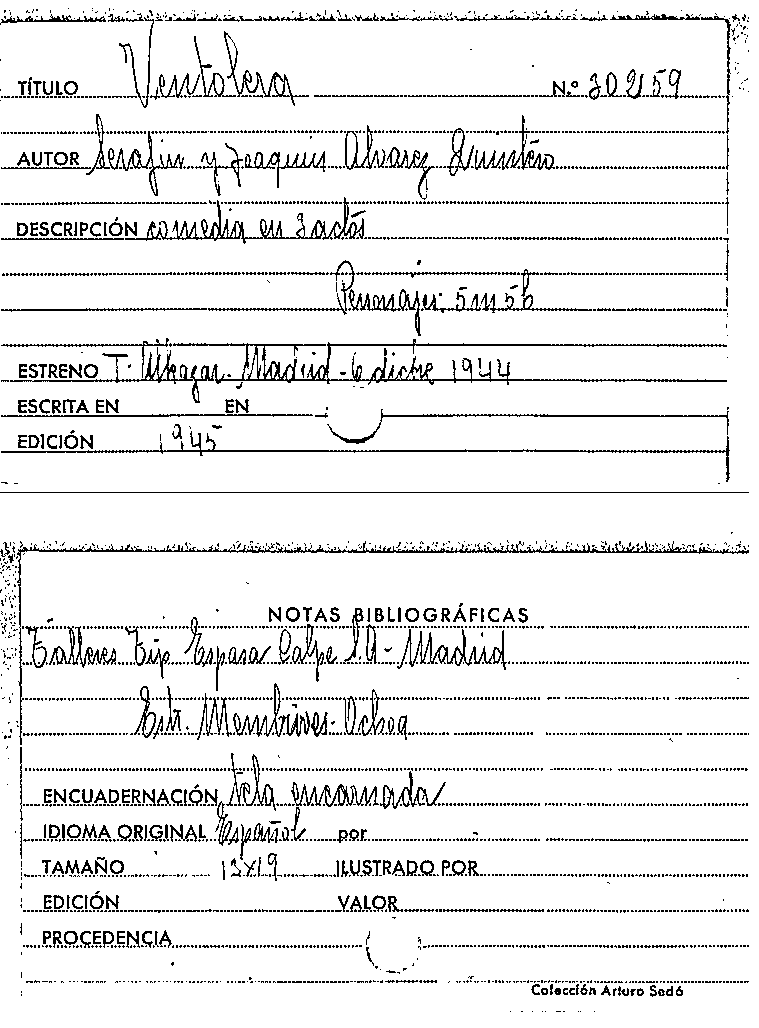 TÍTULO Ventolera N.º 302159
AUTOR Serafin y Joaquin Alvarez Quintero
DESCRIPCIÓN comedia en 3 actos
Personajes: 5 m 5 h
ESTRENO T. Alkazar. Madrid - 6 dicbre 1944
ESCRITA EN EN
EDICIÓN 1945
NOTAS BIBLIOGRÁFICAS
Talleres Tip Espasa Calpe S.A - Madrid
Estr. Membrives - Ochoa
ENCUADERNACIÓN tela encarnada
IDIOMA ORIGINAL Español por
TAMAÑO 13x19 ILUSTRADO POR
EDICIÓN VALOR
PROCEDENCIA
Colección Arturo Sedó